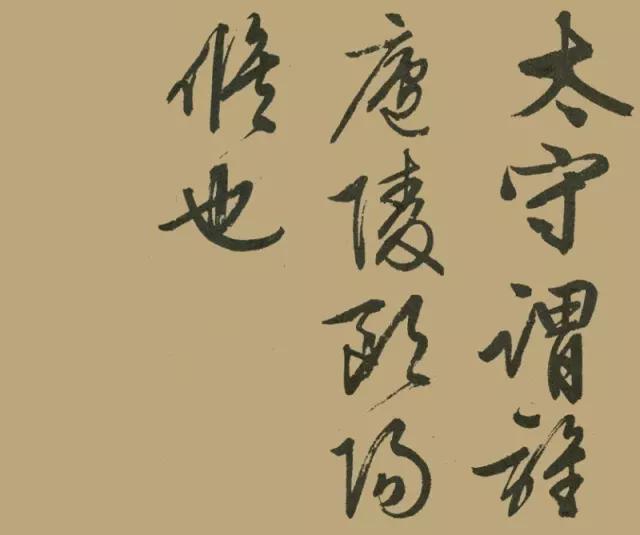 太守謂誰
廬陵歐陽
脩也